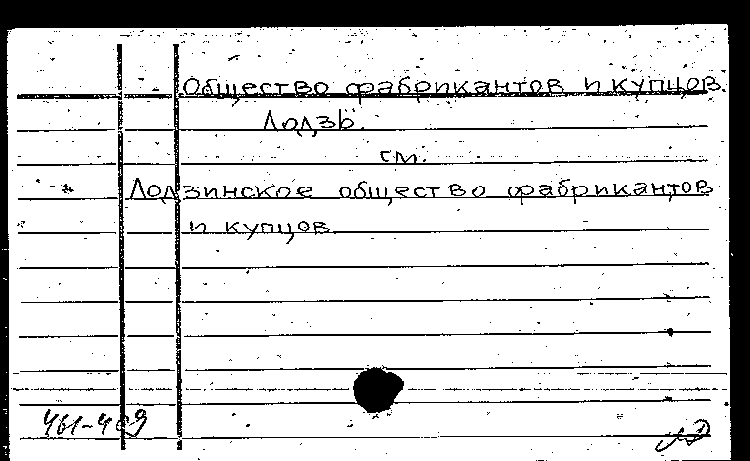 Общество фабрикантов и купцов.
Лодзь.
см.
Лодзинское общество фабрикантов
и купцов.